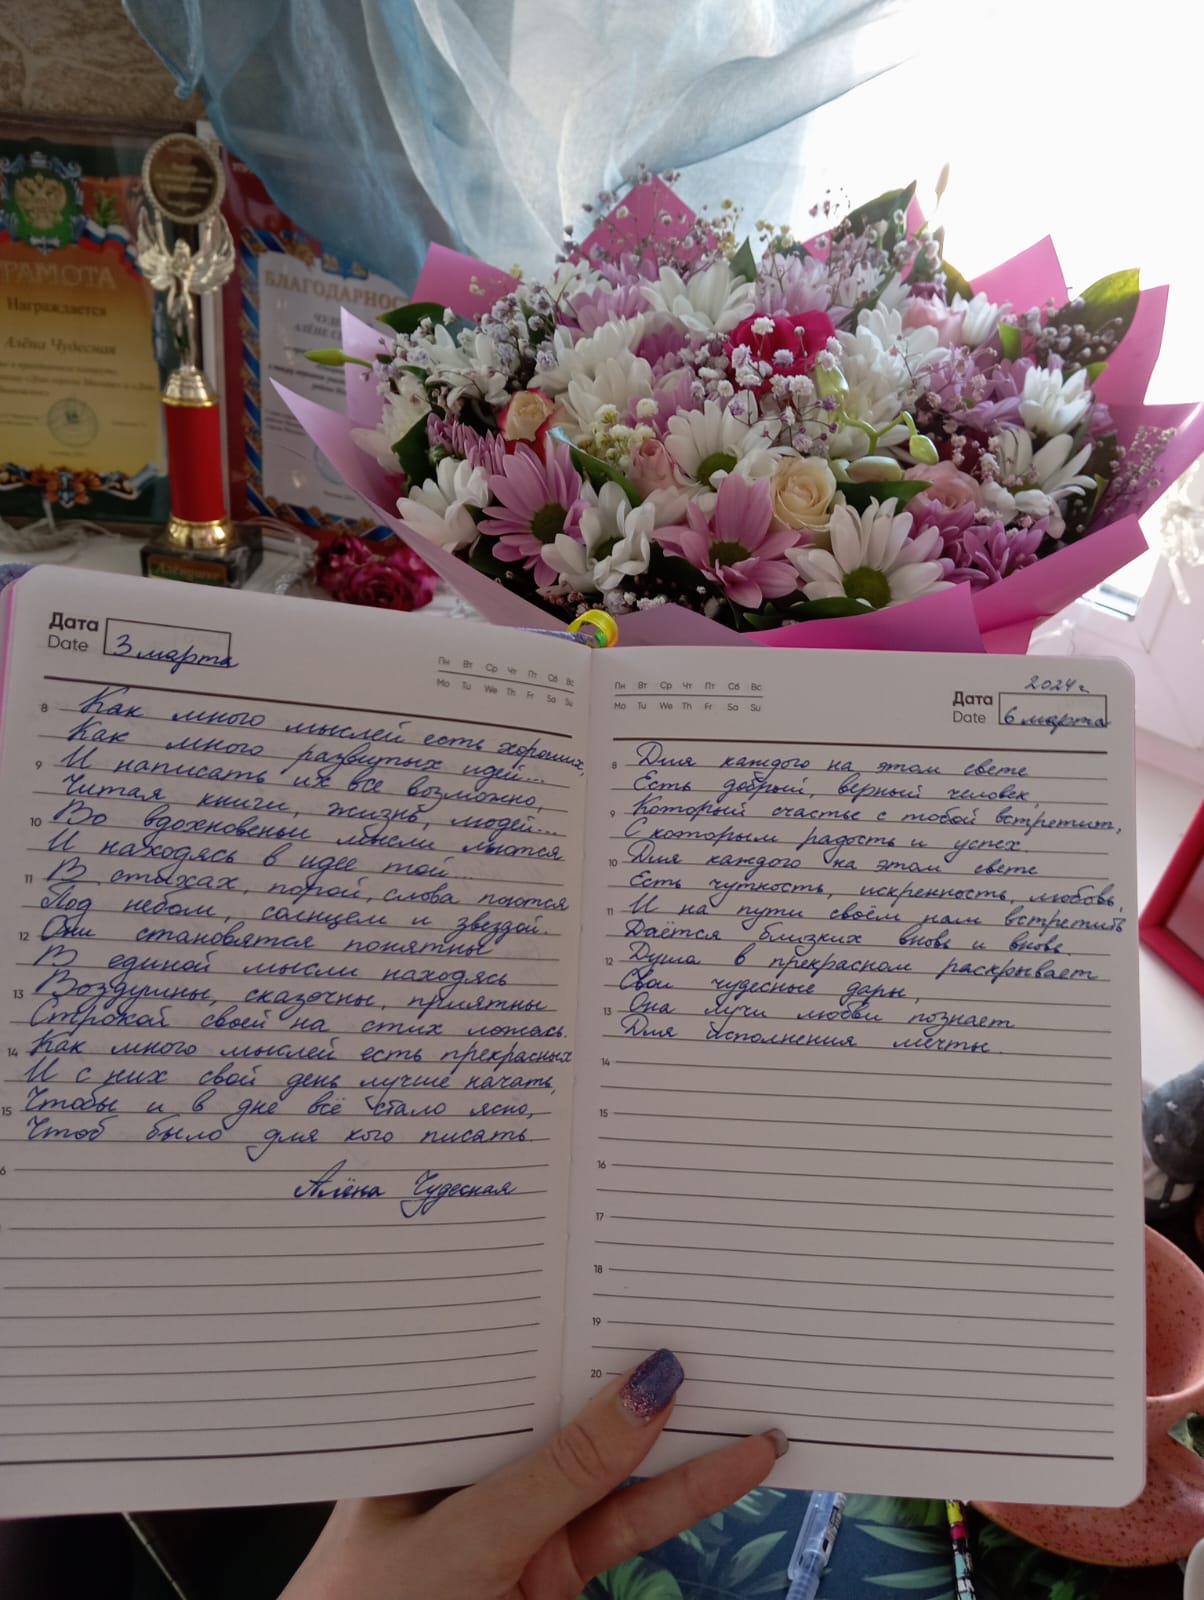 ГРАМОТА
Награждается
Алёна Чудесная
БЛАГОДАРНОС
Дата
Date
3 марта
Пн Вт Ср Чт Пт Сб Вс
Mo Tu We Th Fr Sa Su
8 Как много мыслей есть хороших,
Как много развитых идей...
9 И написать их все возможно,
Читая книги, жизнь, людей...
10 Во вдохновеньи мысли льются
И находясь в идее той...
11 В стихах, порой, слова поются
Под небом, солнцем и звездой.
12 Они становятся понятны
В единой мысли находясь
13 Воздушны, сказочны, приятны
Строкой своей на стих ложась.
14 Как много мыслей есть прекрасных
И с них свой день лучше начать,
15 Чтобы и в дне всё стало ясно,
Чтоб было для кого писать.
6
Алёна Чудесная
Пн Вт Ср Чт Пт Сб Вс
Mo Tu We Th Fr Sa Su
2024 г.
Дата
Date
6 марта
8 Для каждого на этом свете
Есть добрый, верный человек,
9 Который счастье с тобой встретит,
С которым радость и успех.
10 Для каждого на этом свете
Есть чуткость, искренность, любовь,
11 И на пути своём нам встретить
Даётся близких вновь и вновь.
12 Душа в прекрасном раскрывает
Свои чудесные дары,
13 Она лучи любви познает
Для исполнения мечты.
14
15
16
17
18
19
20